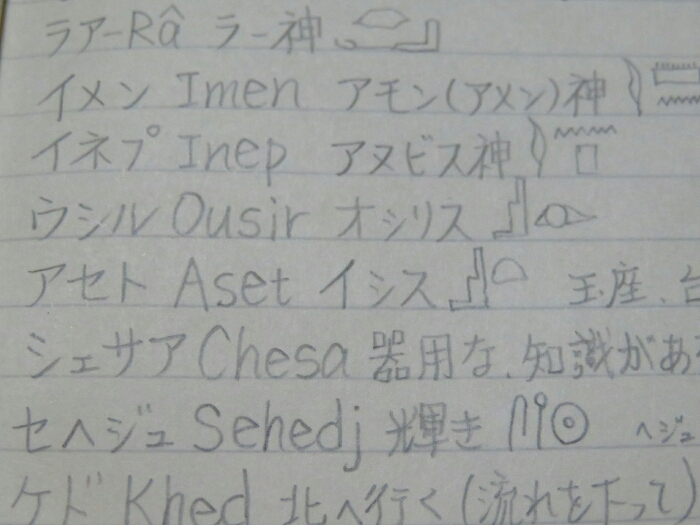 ラアーRâ ラー神
イメン Imen アモン(アメン)神
イネプ Inep アヌビス神
ウシル Ousir オシリス
アセト Aset イシス 玉座、台
シェサア Chesa 器用な、知識があ
セヘジュ Sehedj 輝き ヘジュ
ケド Khed 北へ行く(流れを下って)